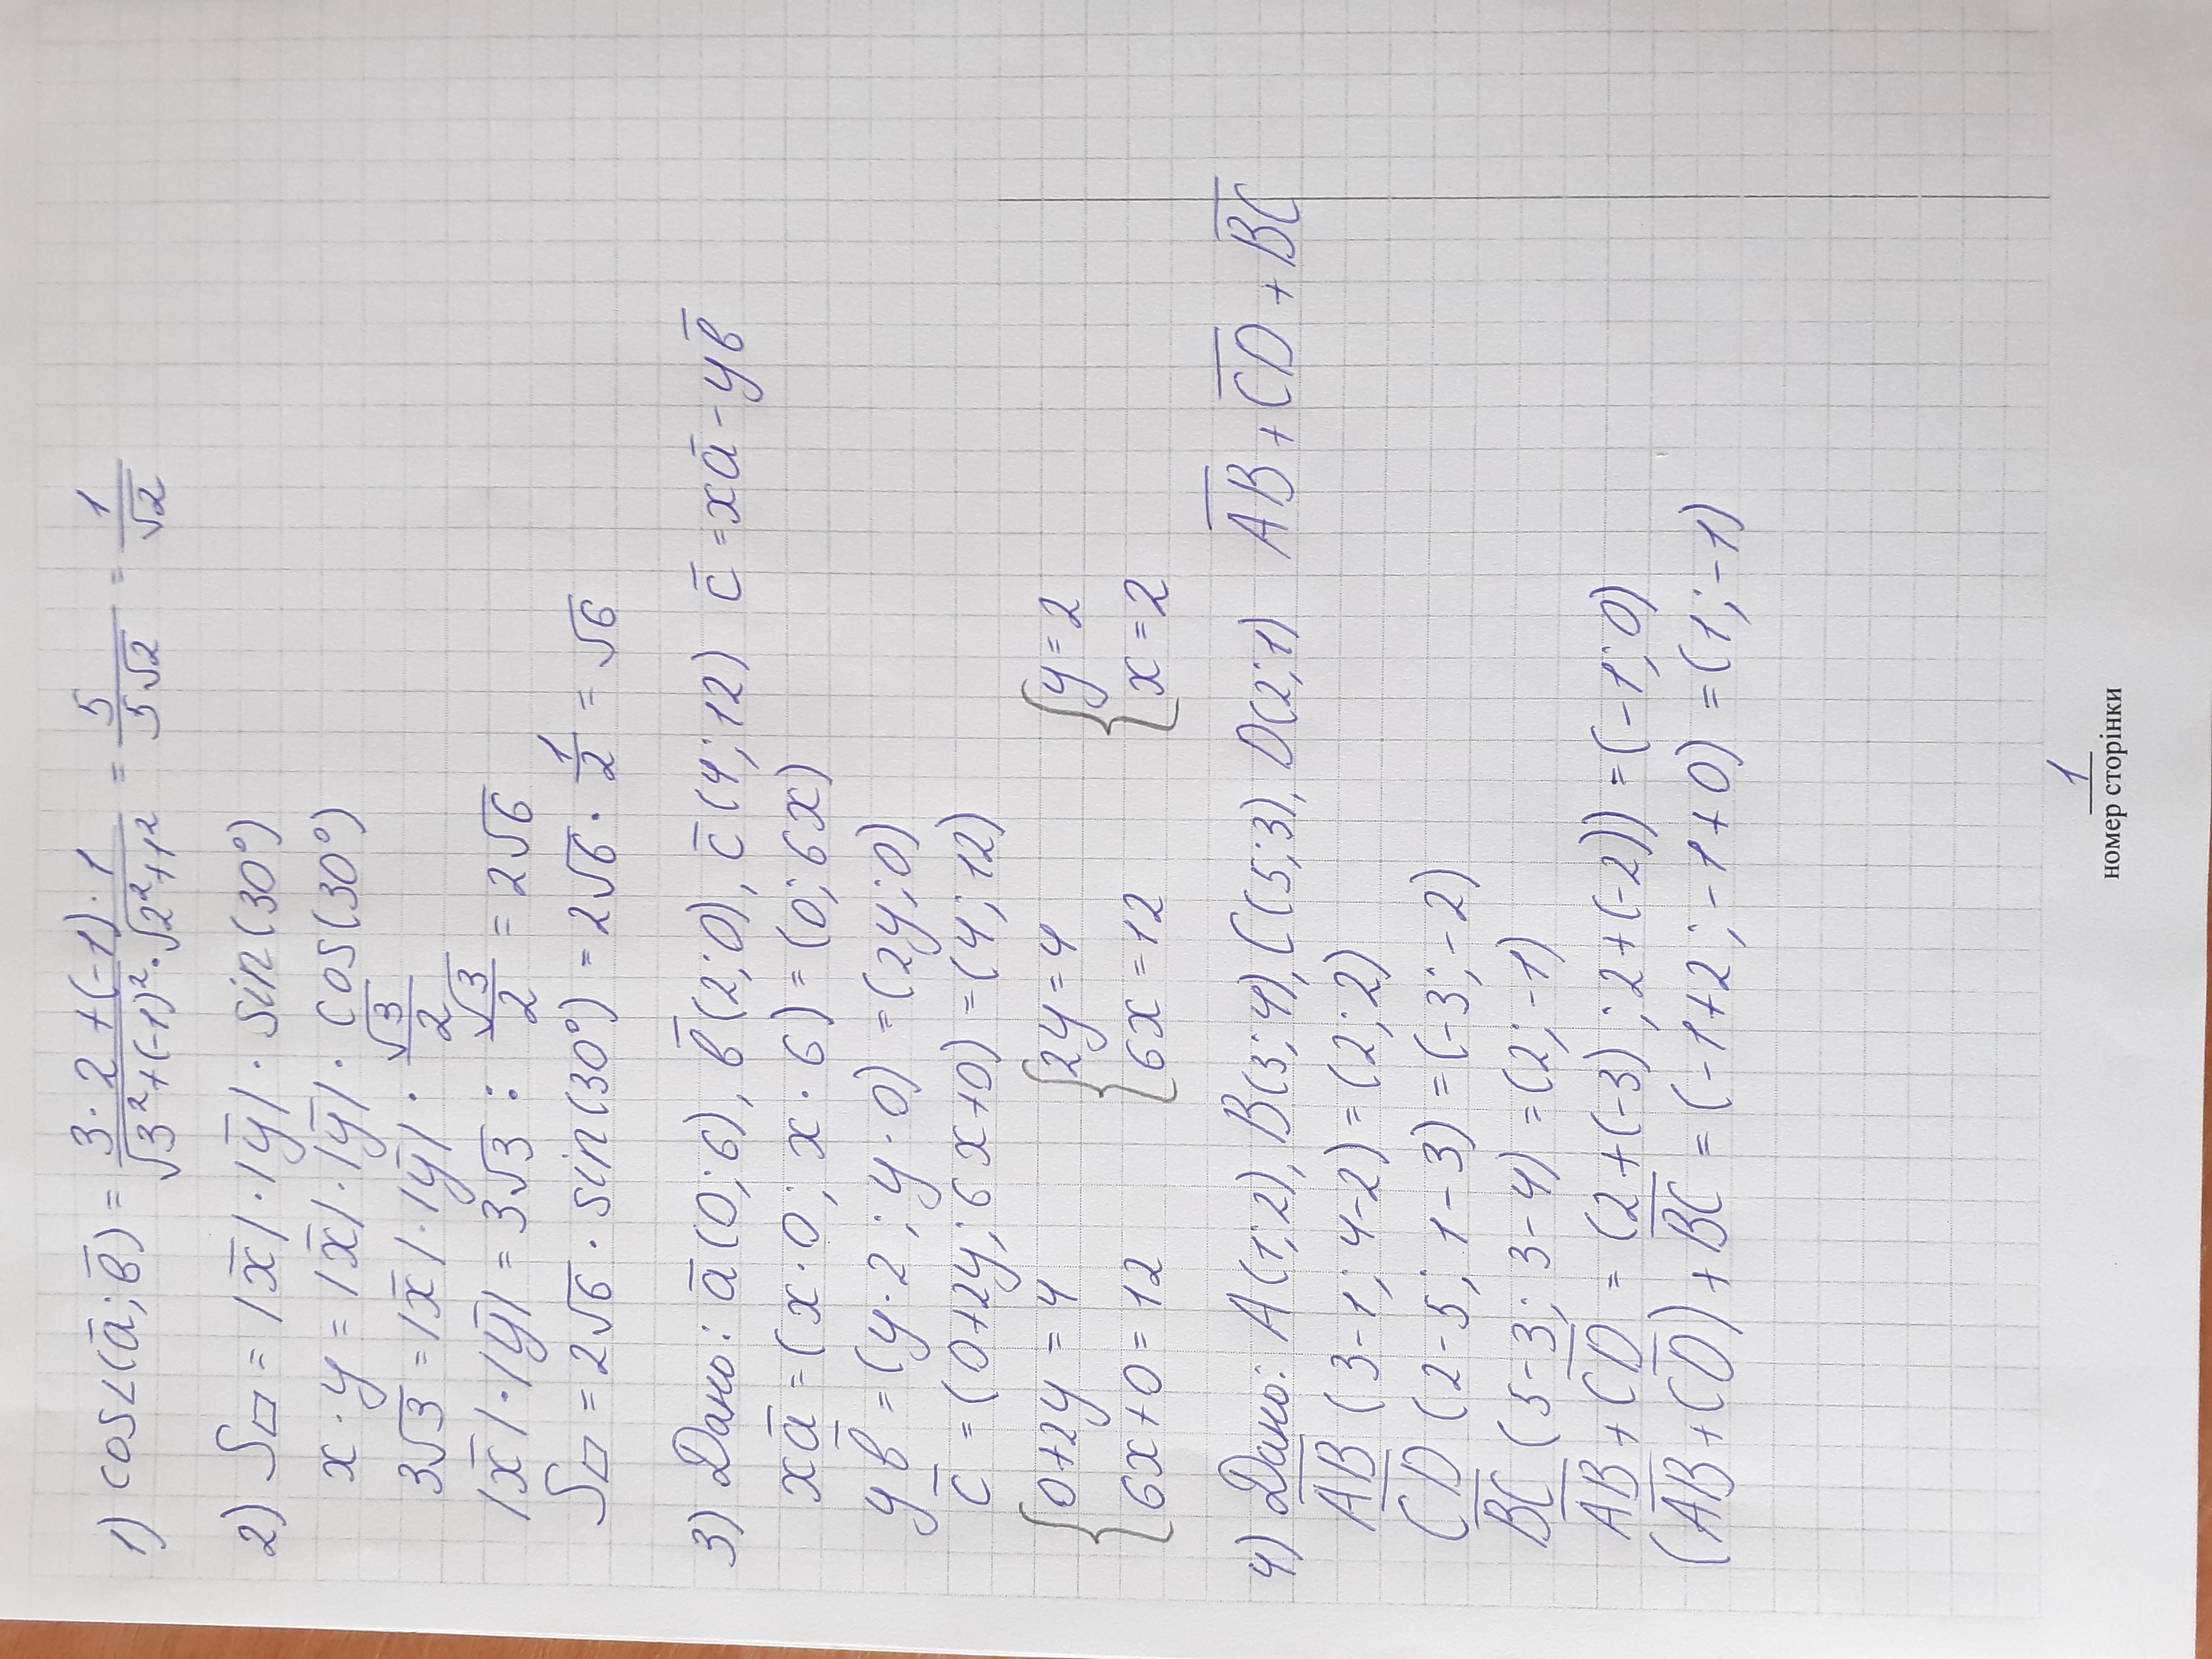 1) cos∠(a̅; b̅) = (3·2+(-1)·1)/(√3²+(-1)²·√2²+1²) = 5/5√2 = 1/√2
2) S▱ = |x̅|·|y̅|· sin(30°)
x·y = |x̅|·|y̅|· cos(30°)
3√3 = |x̅|·|y̅|· √3/2
|x̅|·|y̅| = 3√3 : √3/2 = 2√6
S▱ = 2√6 · sin(30°) = 2√6 · 1/2 = √6
3) Дано: a̅(0;6), b̅(2;0), c̅(4;12) c̅ = xa̅ - yb̅
xa̅ = (x·0; x·6) = (0; 6x)
yb̅ = (y·2; y·0) = (2y; 0)
c̅ = (0+2y; 6x+0) = (4; 12)
{0+2y = 4 {2y = 4 {y = 2
{6x+0 = 12 {6x = 12 {x = 2
4) Дано: A(1;2), B(3;4), C(5;3), D(2;1) A̅B̅ + C̅D̅ + B̅C̅
A̅B̅ (3-1; 4-2) = (2; 2)
C̅D̅ (2-5; 1-3) = (-3; -2)
B̅C̅ (5-3; 3-4) = (2; -1)
A̅B̅ + C̅D̅ = (2+(-3); 2+(-2)) = (-1; 0)
(A̅B̅ + C̅D̅) + B̅C̅ = (-1+2; -1+0) = (1; -1)
1
номер сторінки